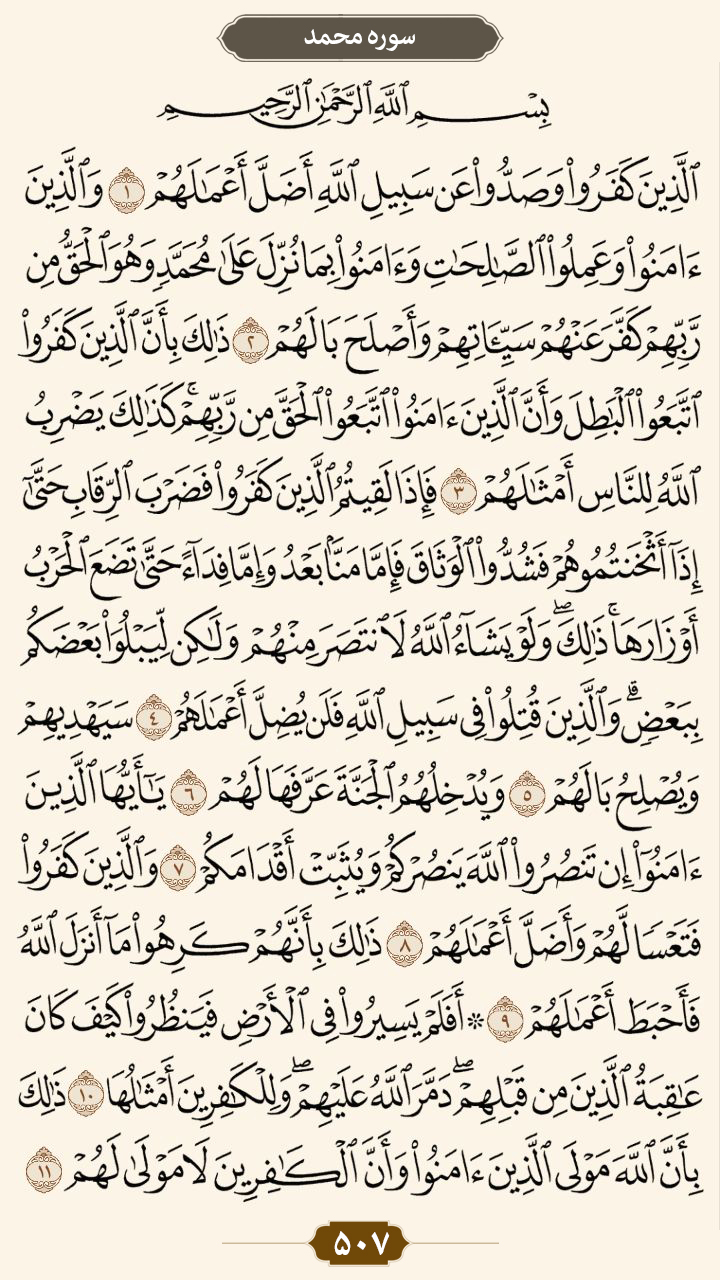 سوره محمد
بِسۡمِ ٱللَّهِ ٱلرَّحۡمَٰنِ ٱلرَّحِيمِ
ٱلَّذِينَ كَفَرُواْ وَصَدُّواْ عَن سَبِيلِ ٱللَّهِ أَضَلَّ أَعۡمَٰلَهُمۡ ١ وَٱلَّذِينَ
ءَامَنُواْ وَعَمِلُواْ ٱلصَّٰلِحَٰتِ وَءَامَنُواْ بِمَا نُزِّلَ عَلَىٰ مُحَمَّدٖ وَهُوَ ٱلۡحَقُّ مِن
رَّبِّهِمۡ كَفَّرَ عَنۡهُمۡ سَيِّـَٔاتِهِمۡ وَأَصۡلَحَ بَالَهُمۡ ٢ ذَٰلِكَ بِأَنَّ ٱلَّذِينَ كَفَرُواْ
ٱتَّبَعُواْ ٱلۡبَٰطِلَ وَأَنَّ ٱلَّذِينَ ءَامَنُواْ ٱتَّبَعُواْ ٱلۡحَقَّ مِن رَّبِّهِمۡۚ كَذَٰلِكَ يَضۡرِبُ
ٱللَّهُ لِلنَّاسِ أَمۡثَٰلَهُمۡ ٣ فَإِذَا لَقِيتُمُ ٱلَّذِينَ كَفَرُواْ فَضَرۡبَ ٱلرِّقَابِ حَتَّىٰٓ
إِذَآ أَثۡخَنتُمُوهُمۡ فَشُدُّواْ ٱلۡوَثَاقَ فَإِمَّا مَنَّۢا بَعۡدُ وَإِمَّا فِدَآءً حَتَّىٰ تَضَعَ ٱلۡحَرۡبُ
أَوۡزَارَهَاۚ ذَٰلِكَۖ وَلَوۡ يَشَآءُ ٱللَّهُ لَٱنتَصَرَ مِنۡهُمۡ وَلَٰكِن لِّيَبۡلُوَاْ بَعۡضَكُم
بِبَعۡضٖۗ وَٱلَّذِينَ قُتِلُواْ فِي سَبِيلِ ٱللَّهِ فَلَن يُضِلَّ أَعۡمَٰلَهُمۡ ٤ سَيَهۡدِيهِمۡ
وَيُصۡلِحُ بَالَهُمۡ ٥ وَيُدۡخِلُهُمُ ٱلۡجَنَّةَ عَرَّفَهَا لَهُمۡ ٦ يَٰٓأَيُّهَا ٱلَّذِينَ
ءَامَنُوٓاْ إِن تَنصُرُواْ ٱللَّهَ يَنصُرۡكُمۡ وَيُثَبِّتۡ أَقۡدَامَكُمۡ ٧ وَٱلَّذِينَ كَفَرُواْ
فَتَعۡسٗا لَّهُمۡ وَأَضَلَّ أَعۡمَٰلَهُمۡ ٨ ذَٰلِكَ بِأَنَّهُمۡ كَرِهُواْ مَآ أَنزَلَ ٱللَّهُ
فَأَحۡبَطَ أَعۡمَٰلَهُمۡ ٩ ۞ أَفَلَمۡ يَسِيرُواْ فِي ٱلۡأَرۡضِ فَيَنظُرُواْ كَيۡفَ كَانَ
عَٰقِبَةُ ٱلَّذِينَ مِن قَبۡلِهِمۡۖ دَمَّرَ ٱللَّهُ عَلَيۡهِمۡۖ وَلِلۡكَٰفِرِينَ أَمۡثَٰلُهَا ١٠ ذَٰلِكَ
بِأَنَّ ٱللَّهَ مَوۡلَى ٱلَّذِينَ ءَامَنُواْ وَأَنَّ ٱلۡكَٰفِرِينَ لَا مَوۡلَىٰ لَهُمۡ ١١
۵۰۷